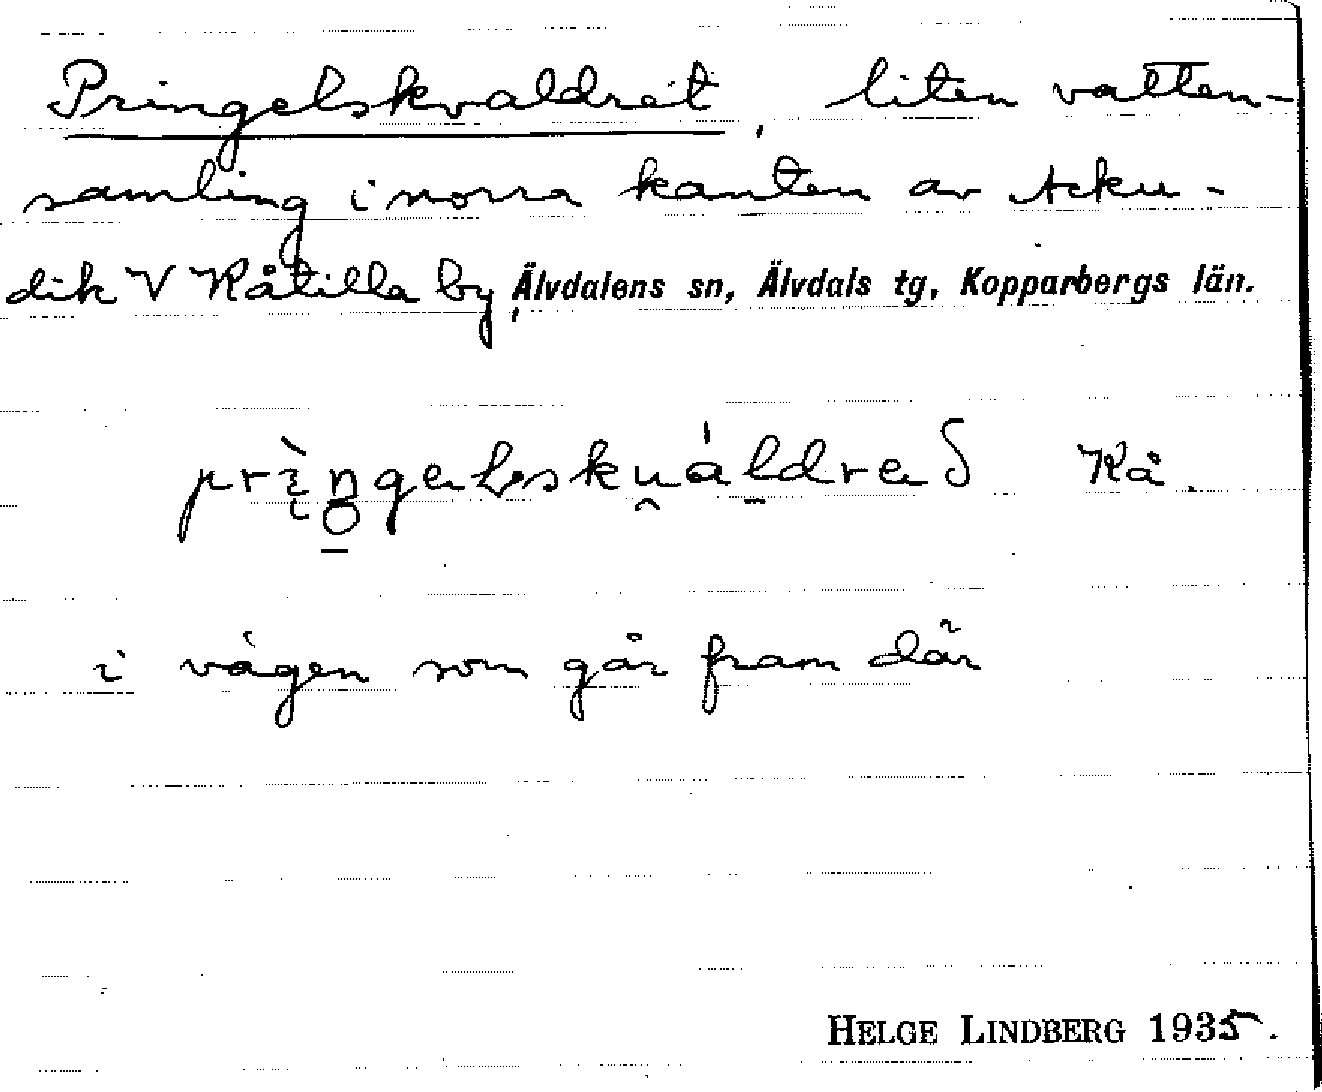 Pringelskvaldret, liten vatten-
samling i norra kanten av Acku-
dik V Kåtilla by, Älvdalens sn, Älvdals tg, Kopparbergs län.
Kå.
i vägen som går fram där
HELGE LINDBERG 1935.